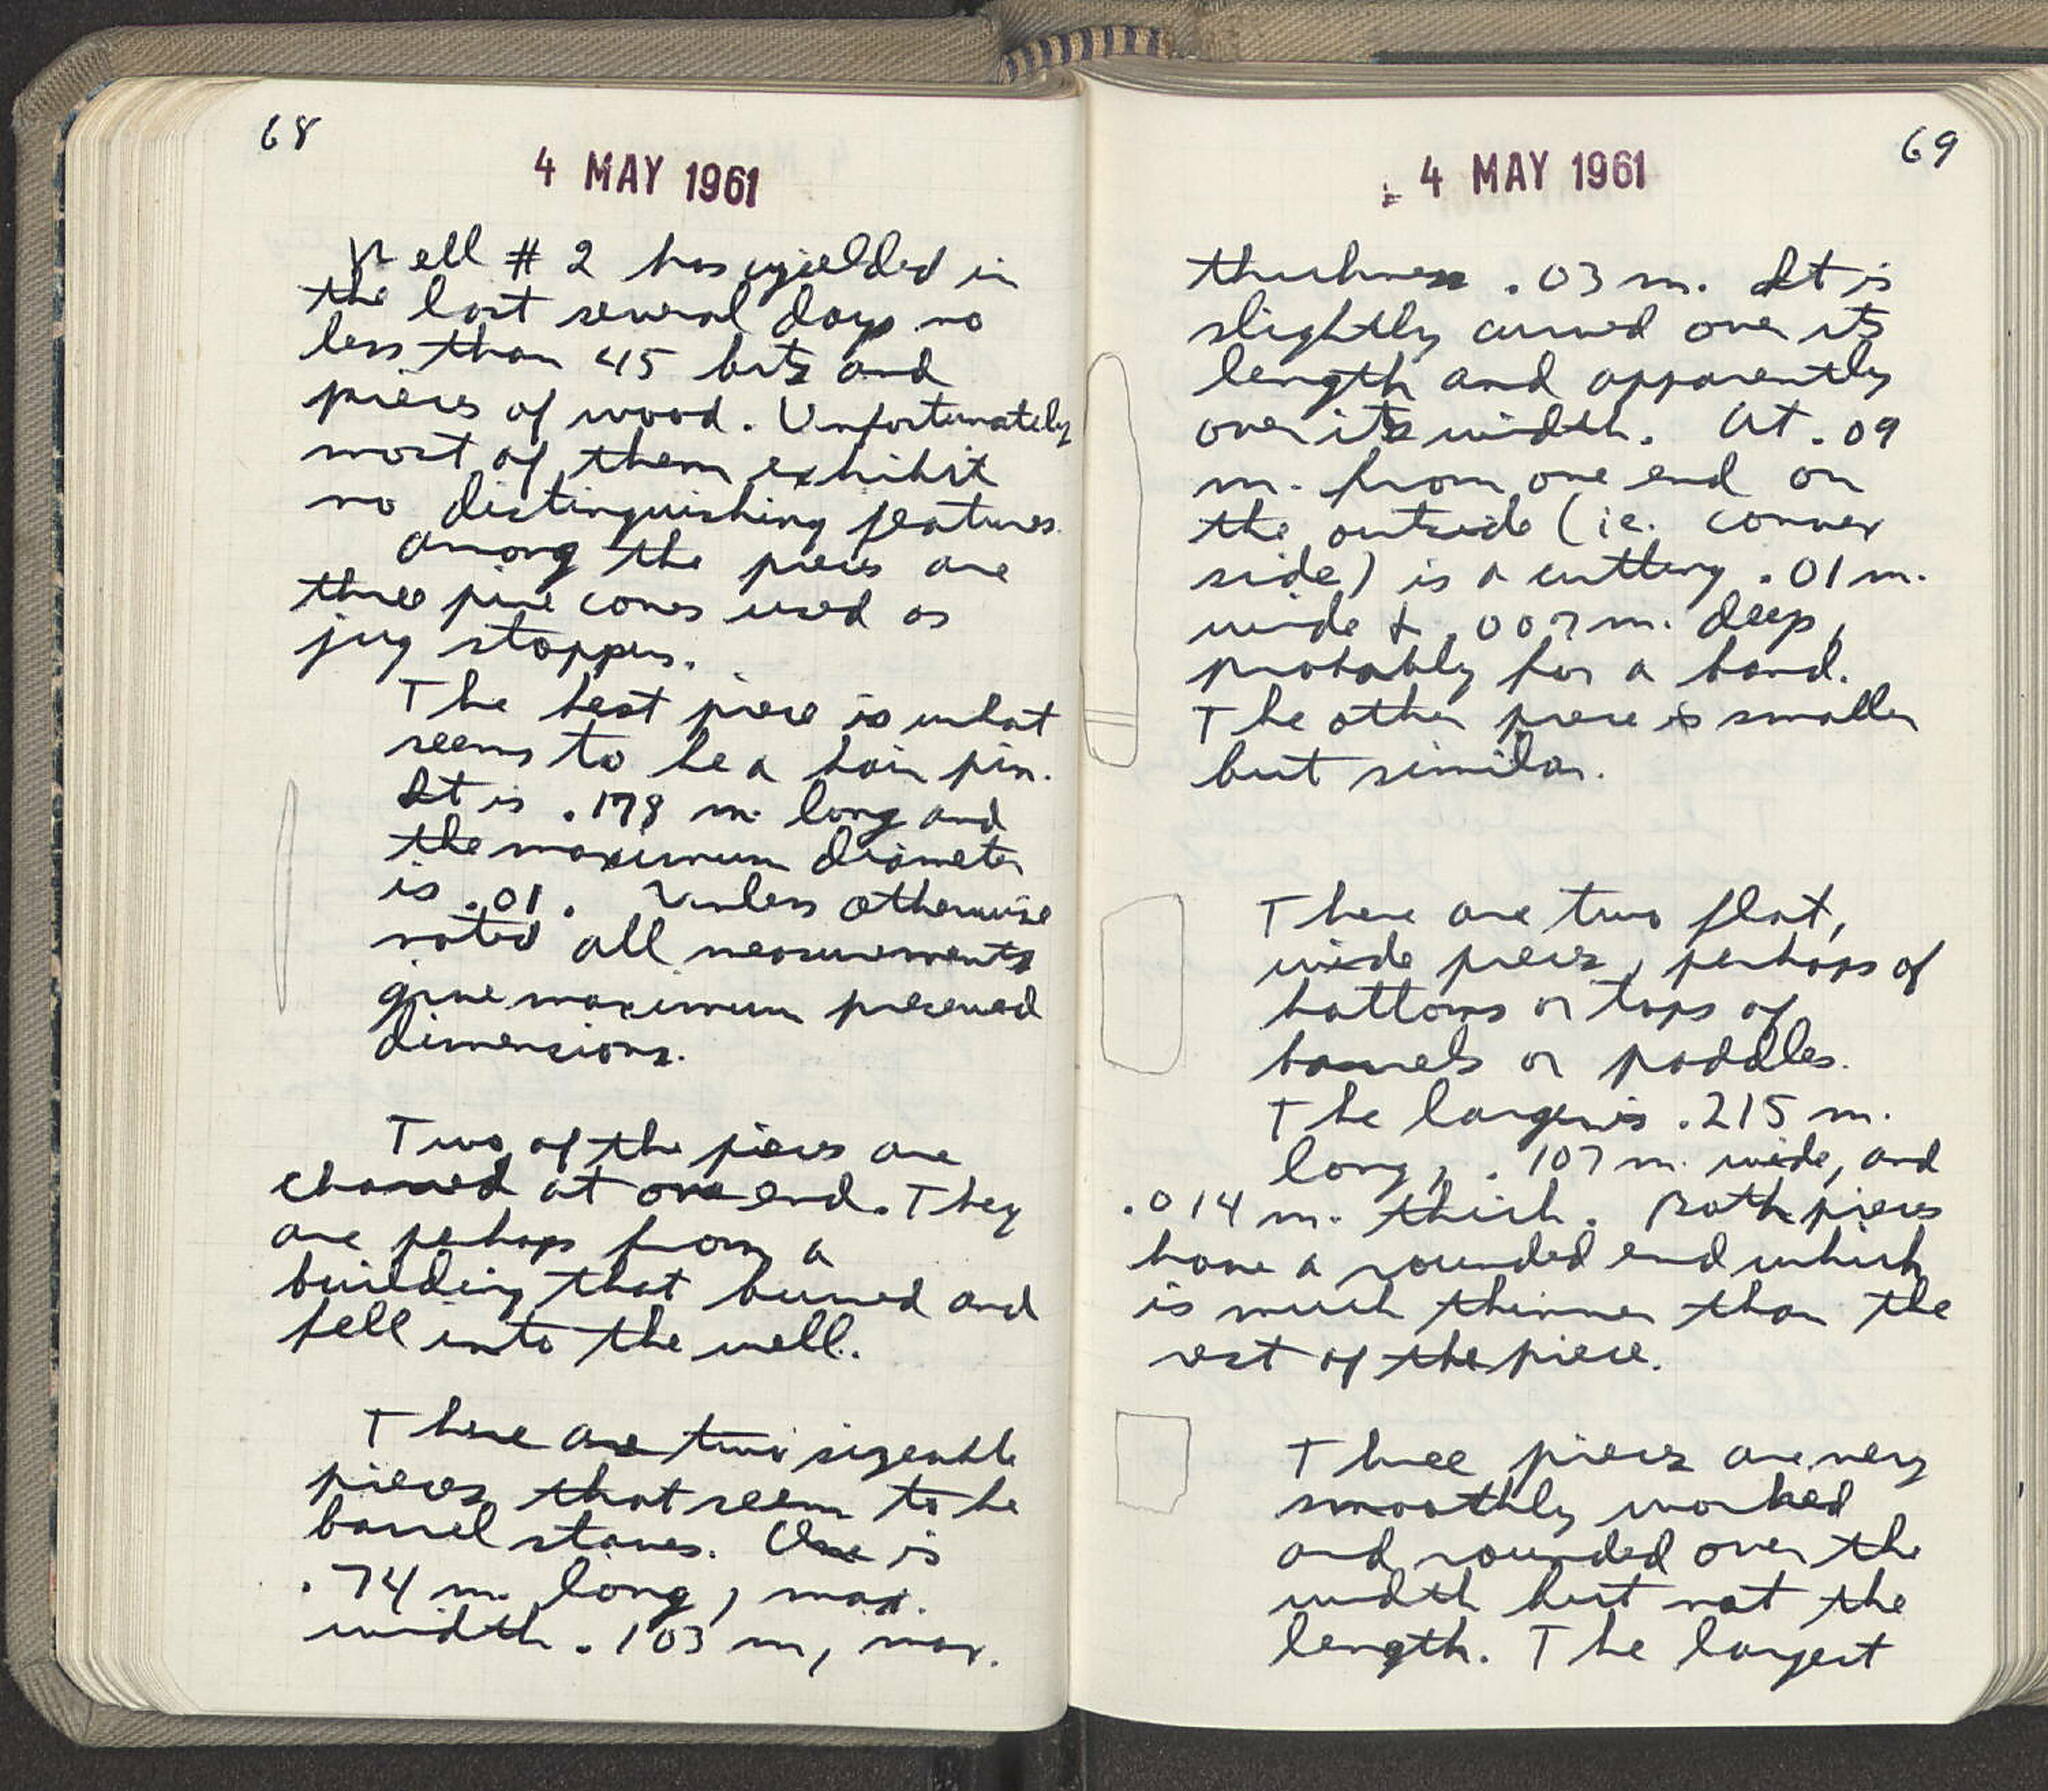 68
4 MAY 1961
Well # 2 has yielded in
the last several days no
less than 45 bits and
pieces of wood. Unfortunately
most of them exhibit
no distinguishing features.
Among the pieces are
three pine cones used as
jug stoppers.
The best piece is what
seems to be a hair pin.
It is .178 m. long and
the maximum diameter
is .01. Unless otherwise
noted all measurements
give maximum preserved
dimensions.
Two of the pieces are
charred at one end. They
are perhaps from a
building that burned and
fell into the well.
There are two sizeable
pieces that seem to be
barrel staves. One is
.74 m. long, max.
width .103 m, max.
69
4 MAY 1961
thickness .03 m. It is
slightly curved over its
length and apparently
over its width. At .09
m. from one end on
the outside (ie. convex
side) is a cutting .01 m.
wide & .007 m. deep,
probably for a band.
The other piece is smaller
but similar.
There are two flat,
wide pieces, perhaps of
bottoms or tops of
barrels or paddles.
The larger is .215 m.
long, .107 m. wide, and
.014 m. thick. Both pieces
have a rounded end which
is much thinner than the
rest of the piece.
Three pieces are very
smoothly worked
and rounded over the
width but not the
length. The largest